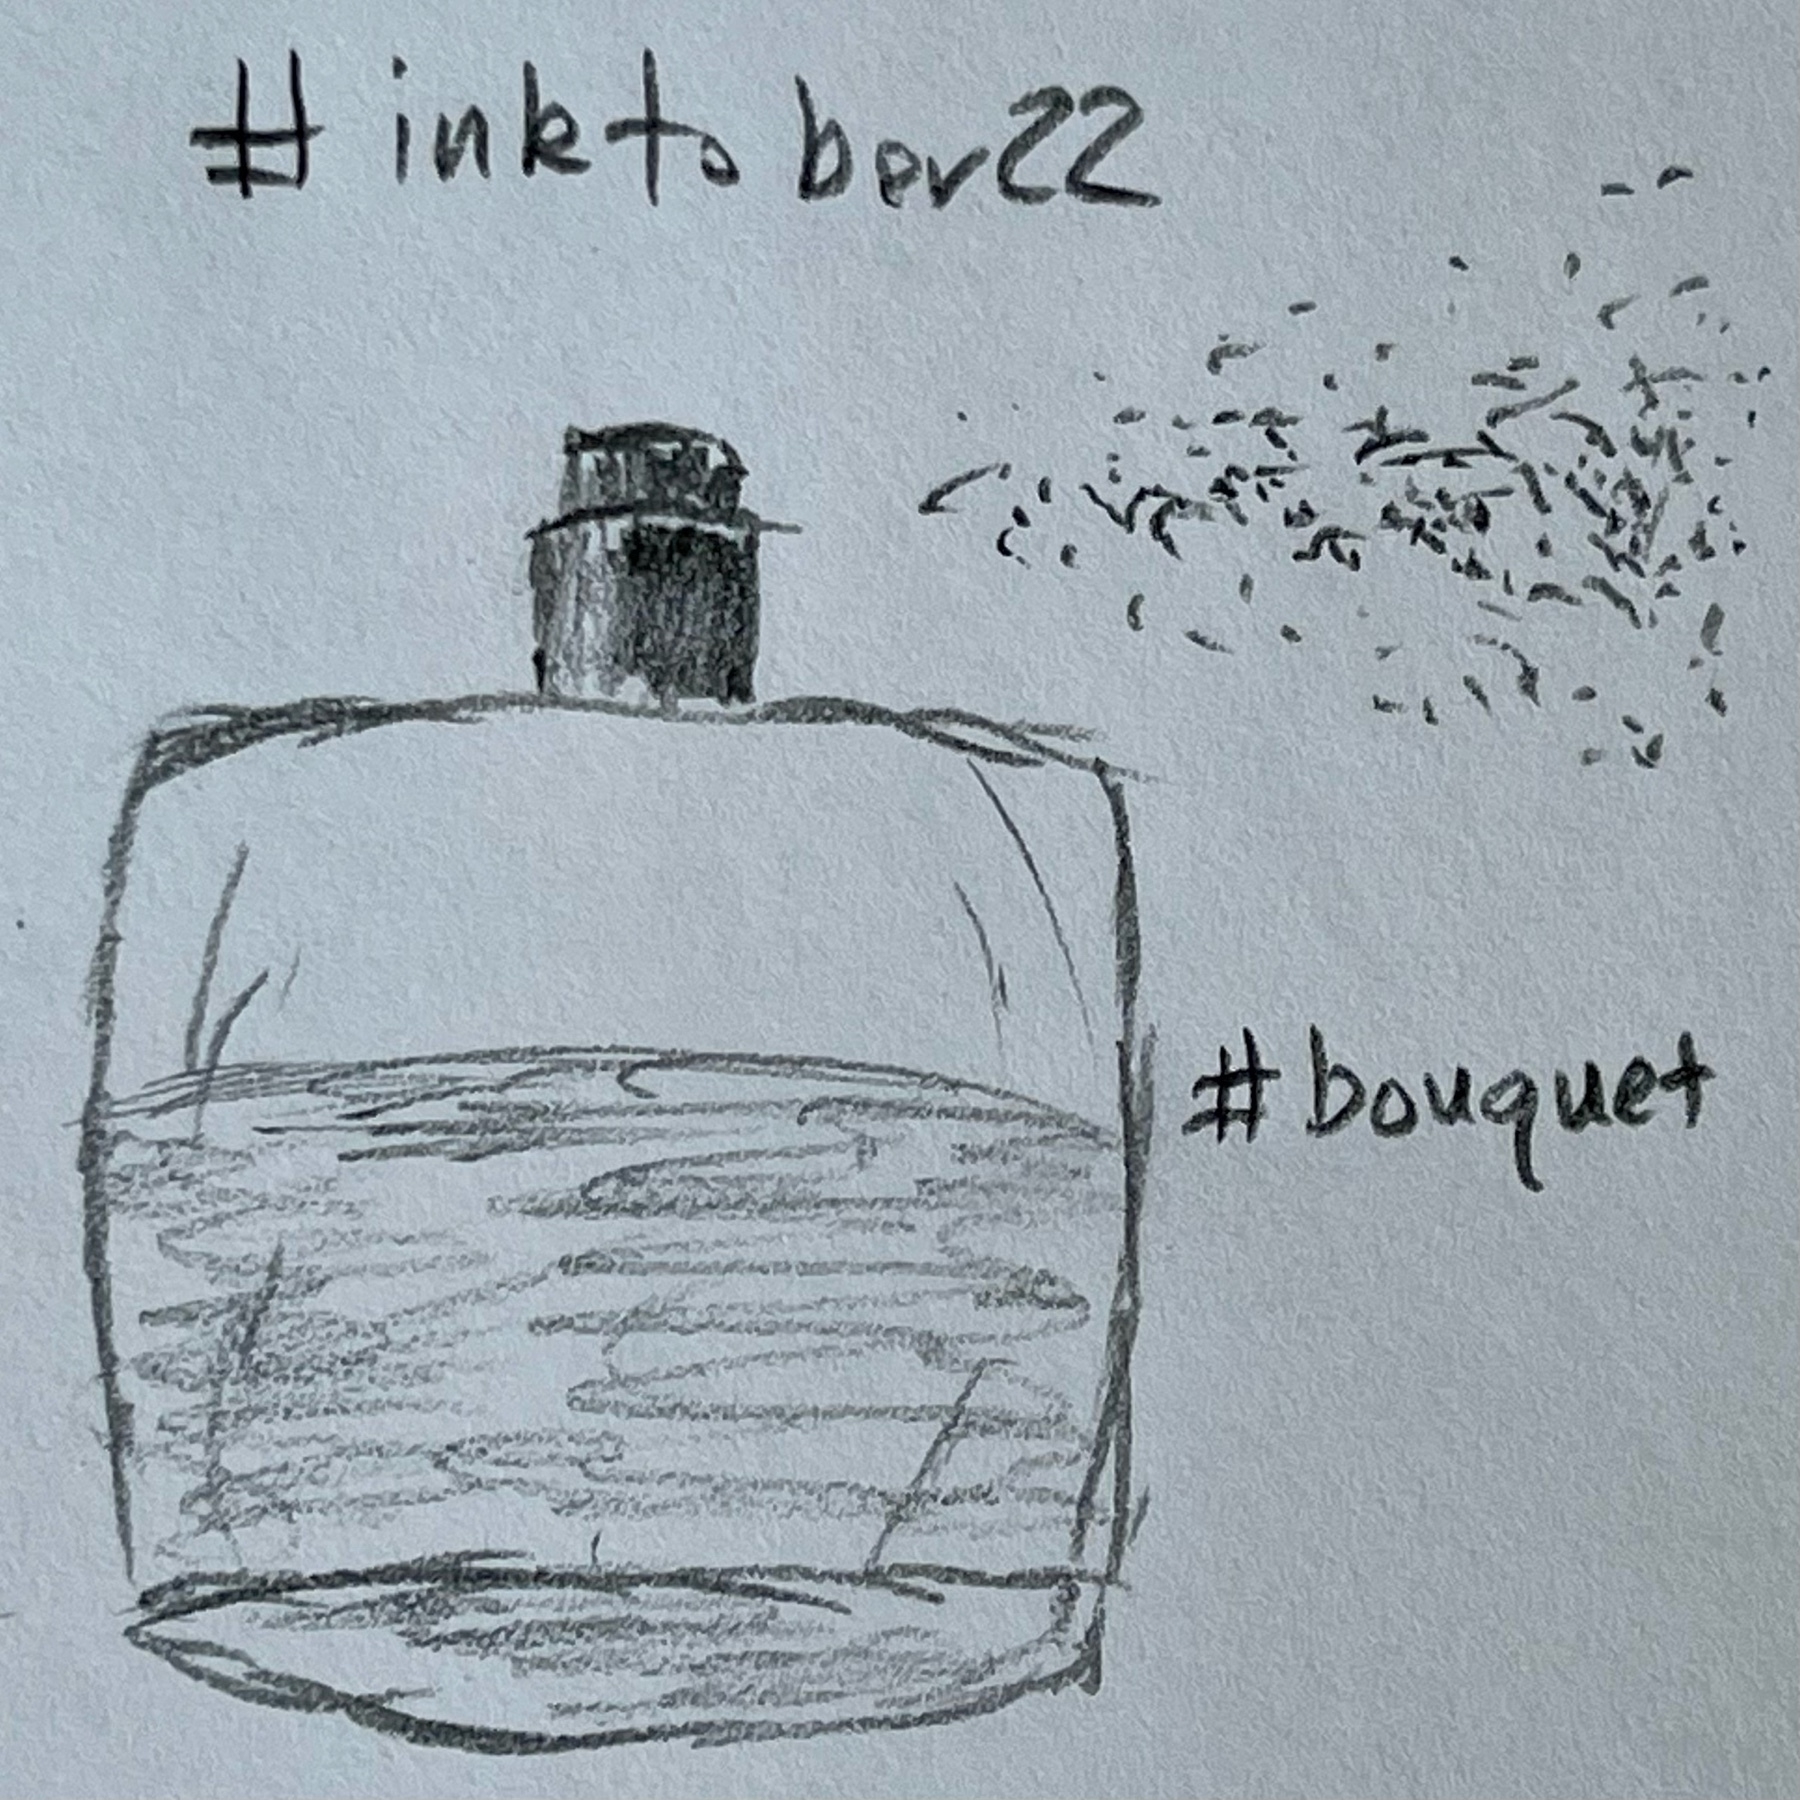 #inktober22
#bouquet